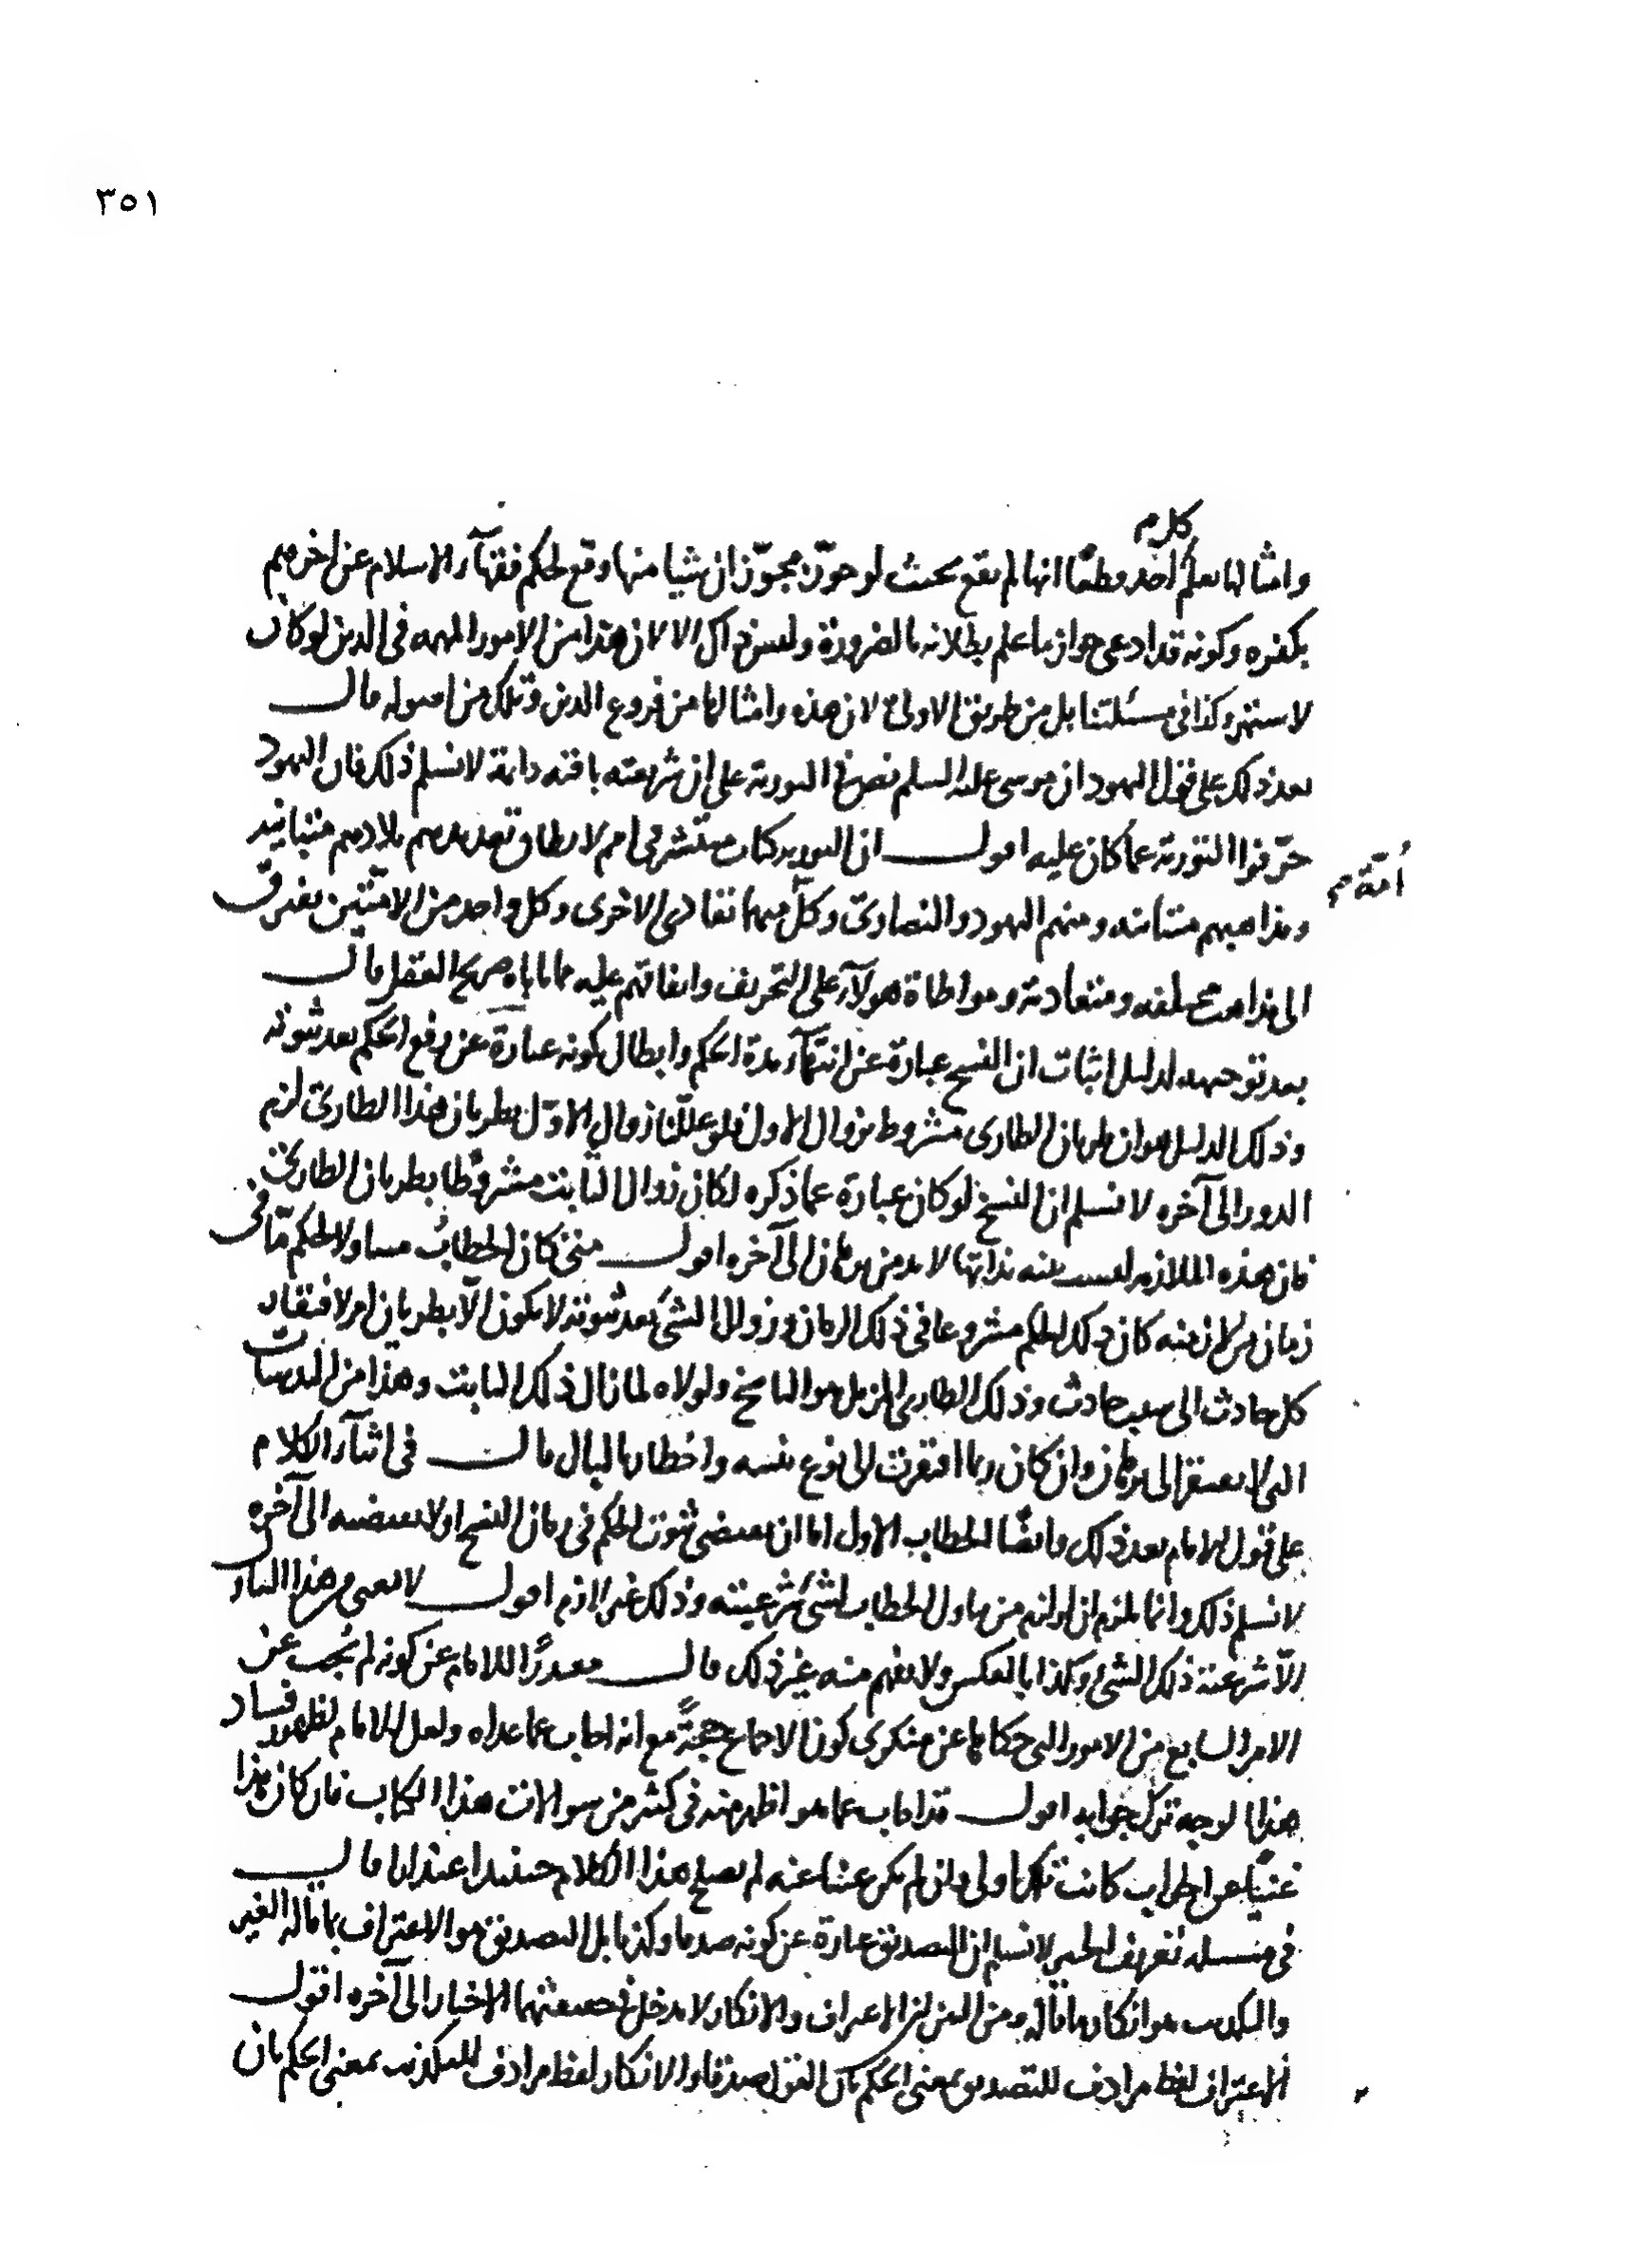 ٣٥١
كل م
وامثالها يعلم احد قطعًا انها لم يقع بحيث لو جوّز مجوّز ان شيئا منها وقع لحكم فقهآء الاسلام عن اخرهم
بكفره وكونه قد ادعى جواز ما علم بطلانه بالضرورة وليس ذاك الا لان هذا من الامور المهمه في الدين لو كان
لاستهر وكذا في مسئلتنا بل من طريق الاولى لان هذه وامثالها من فروع الدين وتلك من اصوله قال
بعد ذلك على قول اليهود ان موسى عليه السلم نص في التورية على ان شريعته باقيه دايمة لا نسلم ذلك فان اليهود
حرّفوا التورية عما كان عليه اقول ان التوريه كتاب منتشر في امم لا يطاق تعديدهم بلادهم متباينه
ومذاهبهم متباينه ومنهم اليهود والنصارى وكلّ منهما تعادى الاخرى وكل واحد من الامتين يفترق
اُمّة م
الى مذاهب مختلفه ومتعادية ومواطاة هولآء على التحريف واتفاقهم عليه مما ياباه صريح العقل قال
بعد توجيهه لدليل اثبات ان النسخ عبارة عن انتهآء مدة الحكم وابطال كونه عبارة عن رفع الحكم بعد ثبوته
وذلك الدليل هو ان طريان الطارى مشروط بزوال الاول فلو عللنا زوال الاوّل بطريان هذا الطارى لزم
الدور الى آخره لا نسلم ان النسخ لو كان عبارة عما ذكره لكان زوال الثابت مشروطًا بطريان الطارى
فان هذه الملازمه ليست بينه بذاتها لا بد من برهان الى آخره اقول متى كان الخطاب متناولا لحكم مّا في
زمان من الازمنه كان ذلك الحكم مشروعا في ذلك الزمان وزوال الشئ بعد ثبوته لا يكون الّا بطريان امر لافتقار
كل حادث الى سبب حادث وذلك الطارى المزيل هو الناسخ ولولاه لما زال ذلك الثابت وهذا من البديهيات
التي لا يفتقر الى برهان وان كان ربما افتقرت الى نوع تنبيه واخطار بالبال قال في اثنآء الكلام
على قول الامام بعد ذلك وايضًا الخطاب الاول اما ان يقتضى ثبوت الحكم في زمان النسخ او لا يقتضيه الى آخره
لا نسلم ذلك وانما يلزم ان لو لزم من تناول الخطاب لشئ شرعيته وذلك غير لازم اقول لا نعنى من هذا التناول
الّا شرعية ذلك الشئ وكذا بالعكس ولا يفهم منه غير ذلك قال معتذرًا للامام عن كونه لم يُجب عن
الامر السابع من الامور التي حكاها عن منكرى كون الاجماع حجةً مع انه اجاب عما عداه ولعل الامام لظهور فساد
هذا الوجه ترك جوابه اقول قد اجاب عما هو اظهر منه في كثير من سوالات هذا الكتاب فان كان هذا
غنيًّا عن الجواب كانت تلك اولى وان لم يكن غنيا عنه لم يصلح هذا الكلام حينئذ اعتذارا قال
في مسله تعريف الخبر لا نسلم ان التصديق عبارة عن كونه صدقا وكذبا بل التصديق هو الاعتراف بما قاله الغير
والتكذيب هو انكار ما قاله ومن البين ان الاعتراف والانكار لا يدخل في حقيقتهما الاخبار الى آخره اقول
الاعتراف لفظ مرادف للتصديق بمعنى الحكم بكون القول صدقا والانكار لفظ مرادف للتكذيب بمعنى الحكم بان